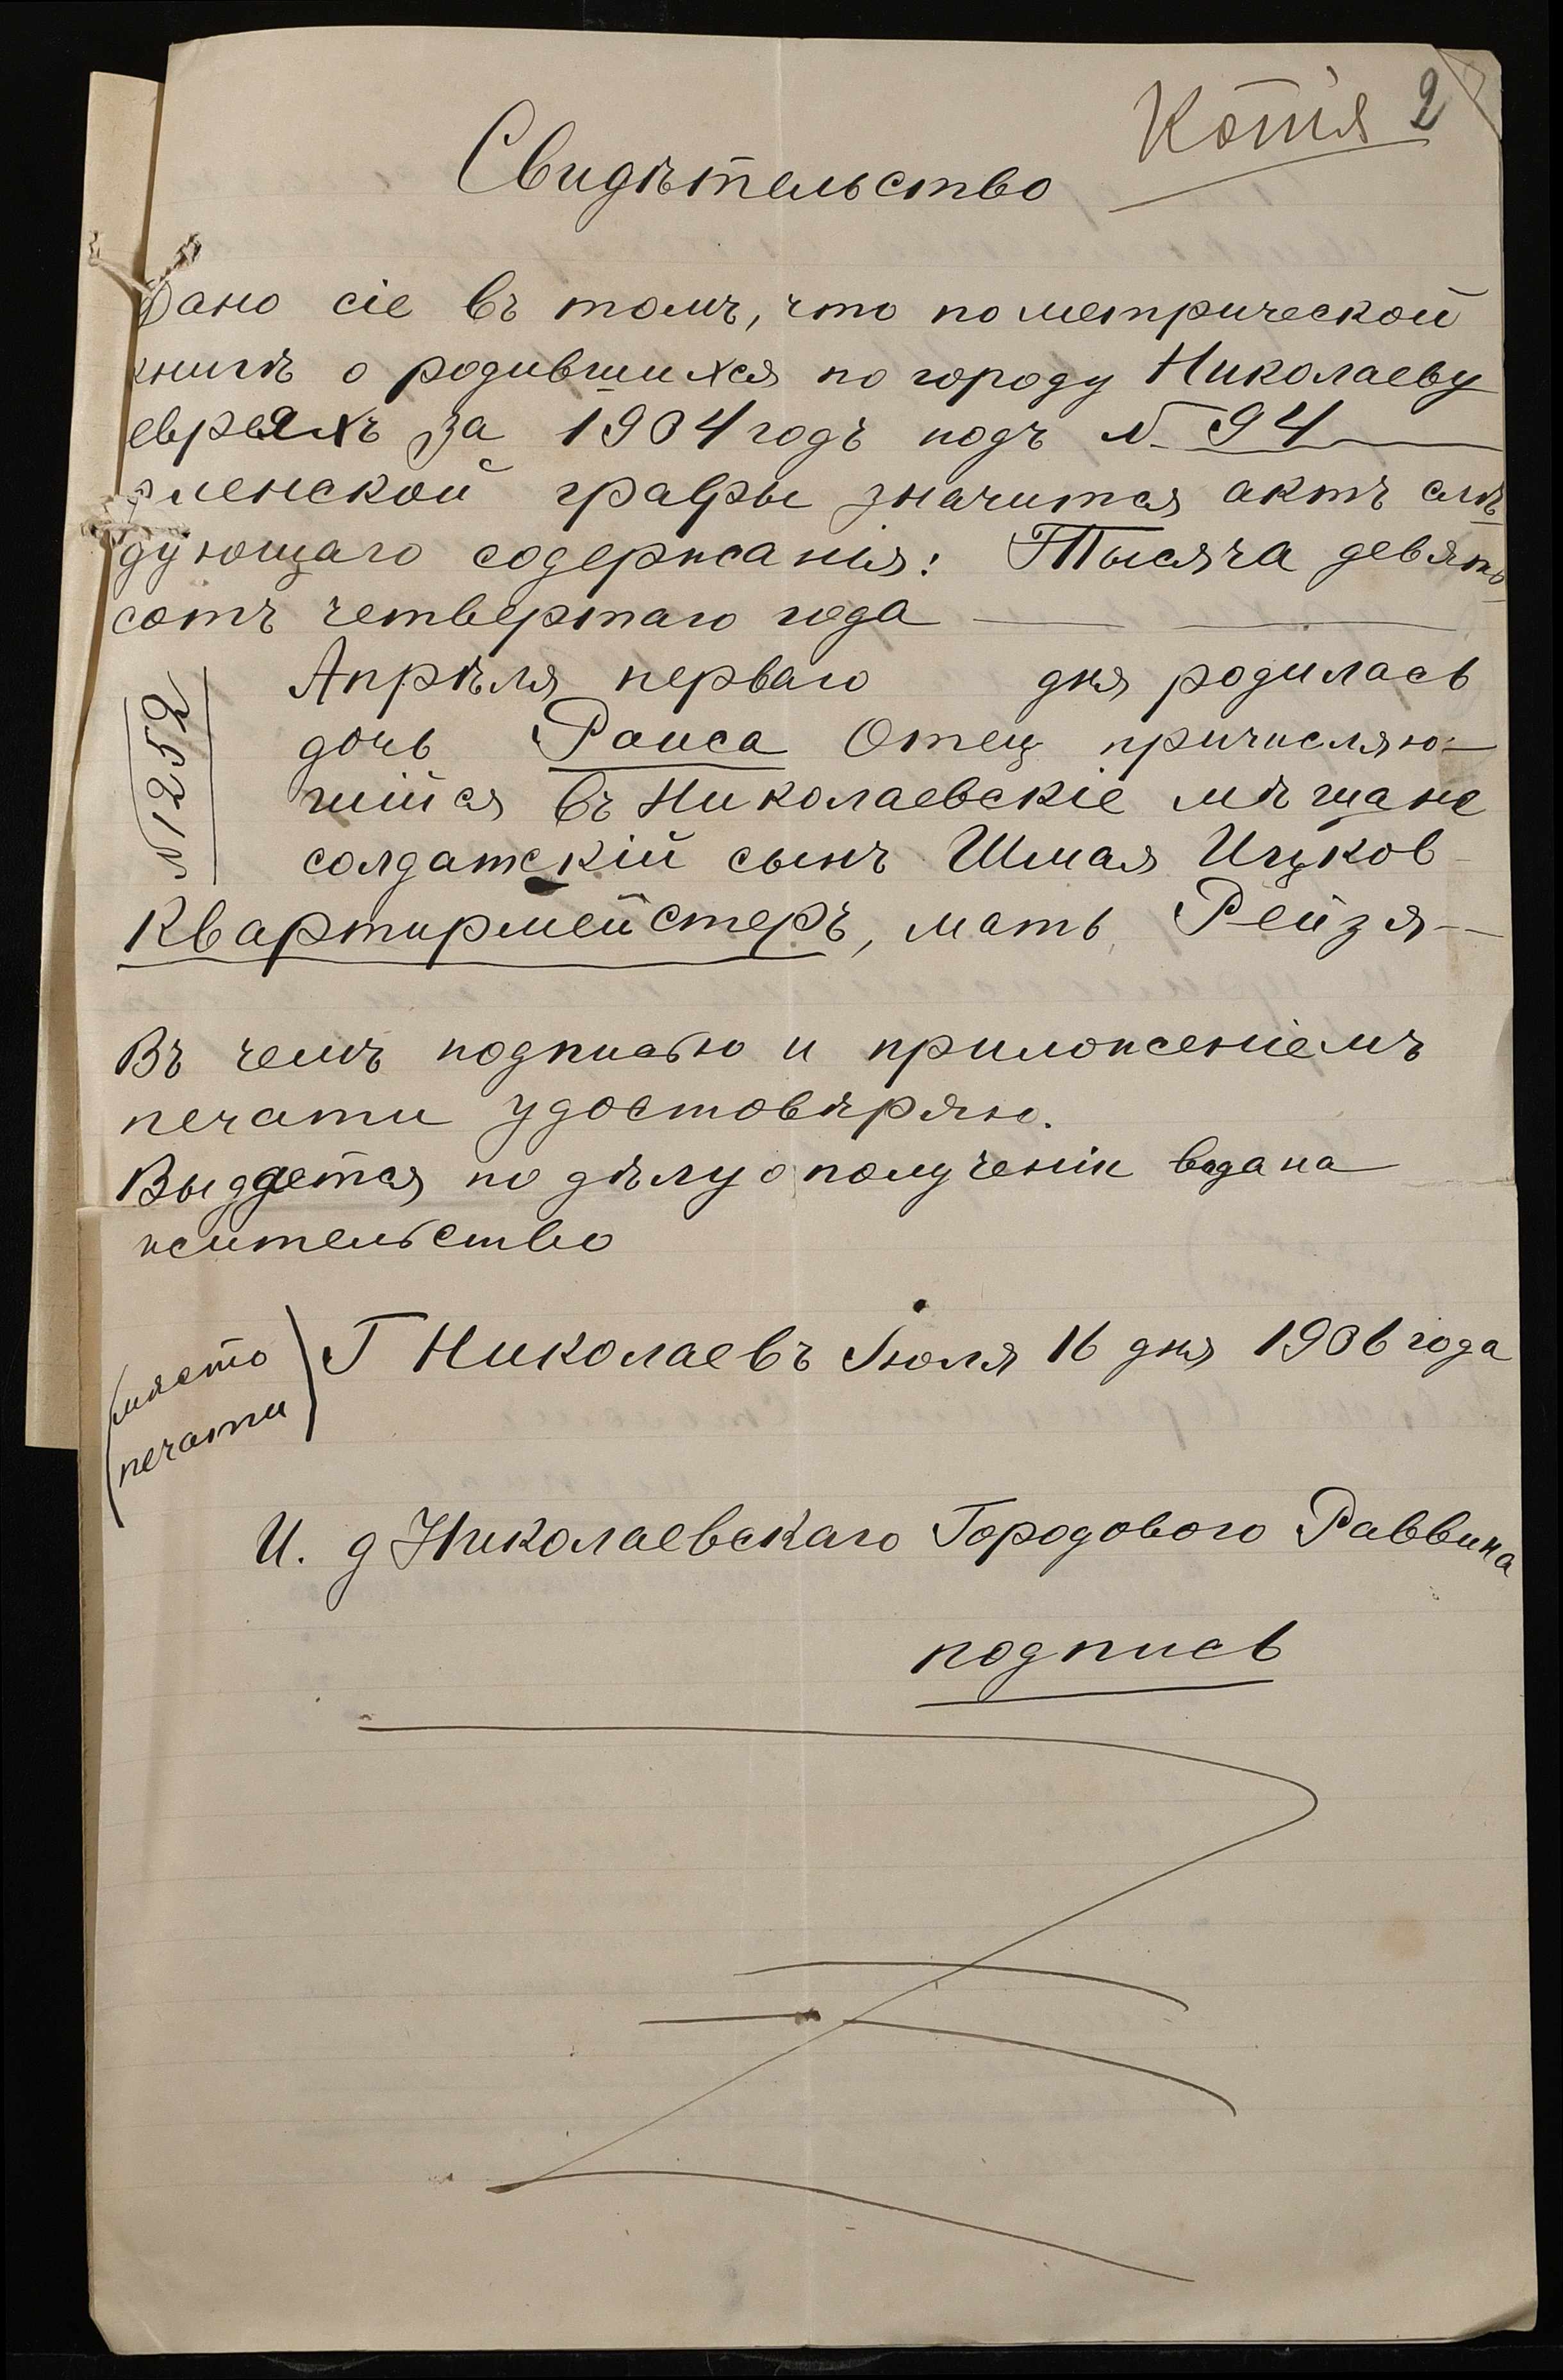 Копія 2
Свидѣтельство
Дано сіе въ томъ, что по метрической
книгѣ о родившихся по городу Николаеву
евреяхъ за 1904 годъ подъ № 94
женской графы значится актъ слѣ
дующаго содержанія: Тысяча девять
сотъ четвертаго года
Апрѣля перваго дня родилась
дочь Раиса Отец причисляю-
щійся въ Николаевскіе мѣщане
солдатскій сынъ Шмая Ицков
Квартирмейстеръ, мать Рейзя
№ 1252
Въ чемъ подписью и приложеніемъ
печати удостовѣряю.
Выдается по дѣлу о полученіи вида на
жительство
(мѣсто
печати)
Г Николаевъ Іюля 16 дня 1906 года
И. д Николаевскаго Городового Раввина
подпись